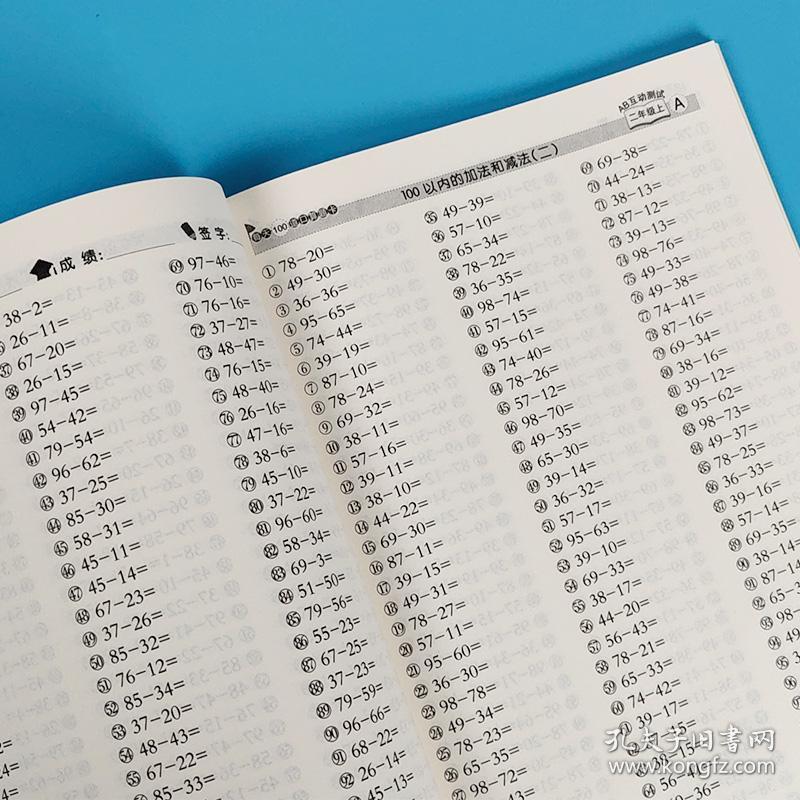 成绩:
签字:
38-2=
26-11=
㊲ 67-20=
㊳ 26-15=
㊴ 97-45=
㊵ 54-42=
㊶ 79-54=
㊷ 96-62=
㊸ 37-25=
㊹ 85-30=
㊺ 58-31=
㊻ 45-11=
㊼ 45-14=
㊽ 67-23=
㊾ 37-26=
㊿ 85-32=
51 76-12=
52 85-34=
53 37-20=
54 48-43=
55 67-22=
85-33=
69 97-46=
70 76-10=
71 76-16=
72 37-27=
73 48-47=
74 76-15=
75 48-40=
76 26-16=
77 47-16=
78 38-6=
79 45-10=
80 37-22=
81 96-60=
82 58-34=
83 69-3=
84 51-50=
85 79-56=
86 55-23=
87 67-25=
88 37-23=
89 79-59=
90 96-66=
91 68-22=
92 26-14=
45-13=
AB互动测试
二年级上 A
100以内的加法和减法(二)
① 78-20=
② 49-30=
③ 36-36=
④ 95-65=
⑤ 74-44=
⑥ 39-19=
⑦ 87-10=
⑧ 78-24=
⑨ 69-32=
⑩ 38-11=
⑪ 57-16=
⑫ 39-11=
⑬ 38-10=
⑭ 44-22=
⑮ 69-30=
⑯ 87-11=
⑰ 39-15=
⑱ 49-31=
⑲ 78-27=
⑳ 57-11=
㉑ 95-60=
㉒ 36-30=
㉓ 98-78=
㉔ 49-34=
㉕ 78-23=
㉖ 65-35=
㉗ 98-72=
㉟ 49-39=
㊱ 57-10=
㊲ 65-34=
㊳ 78-22=
㊴ 36-35=
㊵ 98-74=
㊶ 57-15=
㊷ 95-61=
㊸ 74-40=
㊹ 78-26=
㊺ 57-12=
㊻ 98-70=
㊼ 49-35=
㊽ 65-30=
㊾ 39-14=
㊿ 36-32=
51 57-17=
52 95-63=
53 39-10=
54 69-33=
55 38-17=
56 44-20=
57 56-43=
58 78-21=
59 65-33=
60 74-42=
61 39-17=
69 69-38=
70 44-24=
71 38-13=
72 87-12=
73 39-13=
74 98-76=
75 49-33=
76 49-38=
77 74-41=
78 87-16=
79 69-34=
80 38-16=
81 39-12=
82 95-62=
83 98-73=
84 49-37=
85 78-25=
86 36-33=
87 39-16=
88 57-14=
89 69-35=
90 38-14=
91 87-14
92 65-3
93 98-
94 49
95 3
孔夫子旧书网
www.kongfz.com